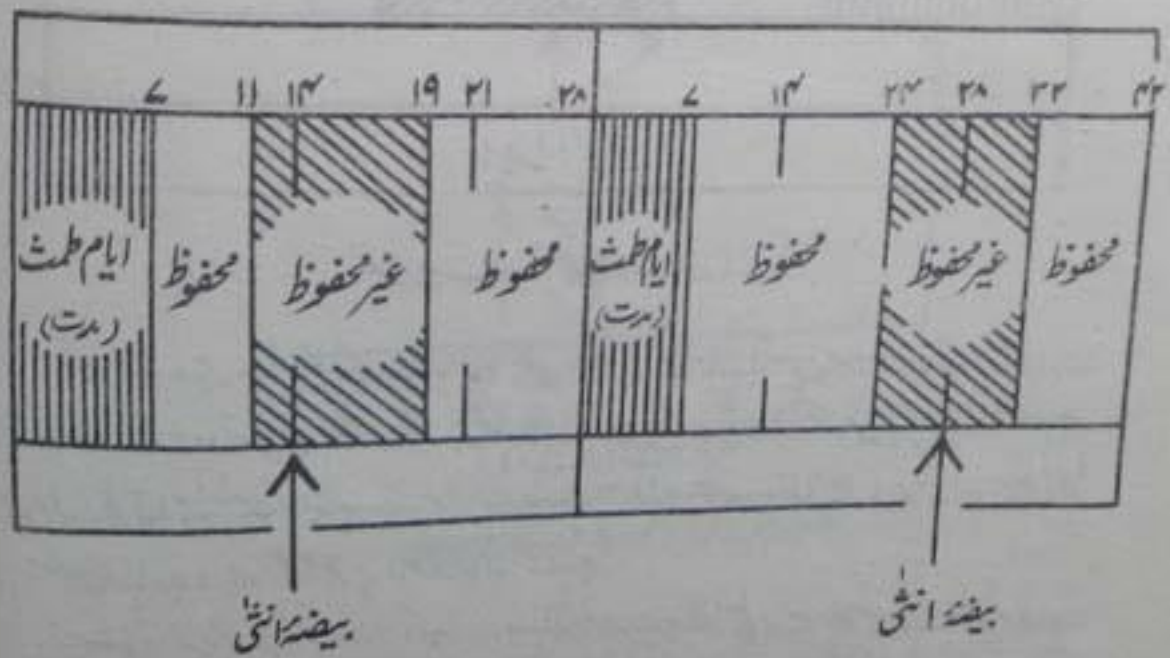 ۷ ۱۱ ۱۴ ۱۹ ۲۱ ۲۸ ۷ ۱۴ ۲۴ ۲۸ ۳۲ ۴۲
ایام طمث
(مدت)
محفوظ
غیر محفوظ
محفوظ
ایام طمث
(مدت)
محفوظ
غیر محفوظ
محفوظ
بیضۂ انثیٰ
بیضۂ انثیٰ